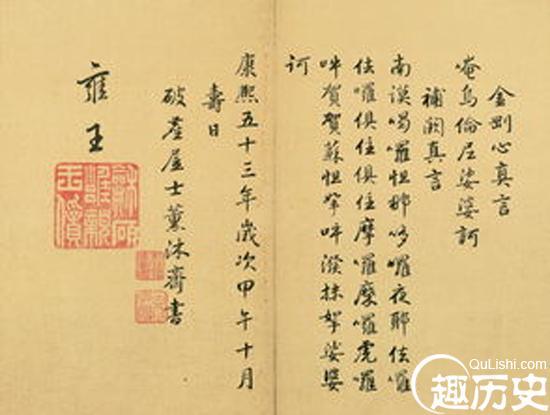 金剛心真言
唵烏倫尼娑婆訶
補闕真言
南謨喝囉怛那哆囉夜耶佉囉
佉囉俱住俱住摩囉摩囉虎囉
吽賀賀蘇怛拏吽潑抹拏娑婆
訶
康熙五十三年歲次甲午十月
壽日
破塵居士薰沐齋書
雍王
QuLishi.com
趣历史